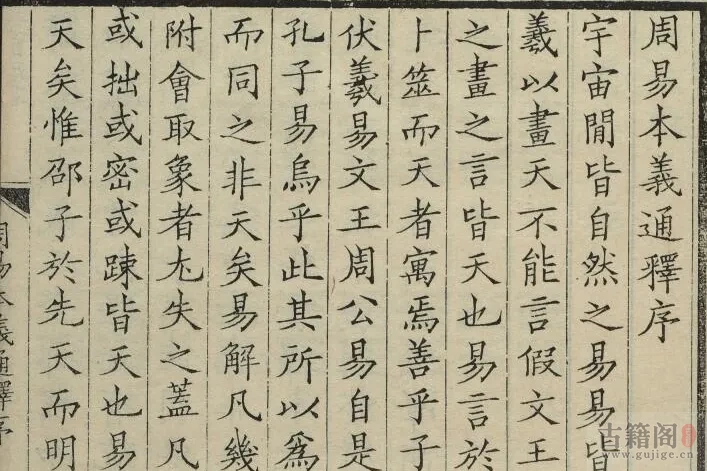 周易本義通釋序
宇宙閒皆自然之易易皆
羲以畫天不能言假文王
之畫之言皆天也易言於
卜筮而天者寓焉善乎子
伏羲易文王周公易自是
孔子易烏乎此其所以爲
而同之非天矣易解凡幾
附會取象者尢失之蓋凡
或拙或密或踈皆天也易
天矣惟邵子於先天而明
周易本義通釋序
古籍阁
www.gujige.cn